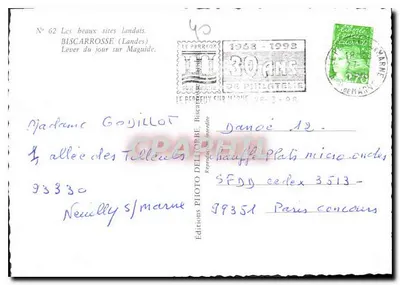 N° 62 Les beaux sites landais.
BISCARROSSE (Landes)
Lever du jour sur Maguide.
40
LE PERREUX
1968 - 1998
30 ANS
DE PHILATELIE
LE PERREUX SUR MARNE
Madame GODILLOT
allée des Tilleuls
93330
Neuilly s/marne
Editions PHOTO DELABRE, Biscarrosse
Reproduction interdite
Danoé 12.
chauffe plats micro-ondes
SFDD cedex 3513-
99351 Paris concours